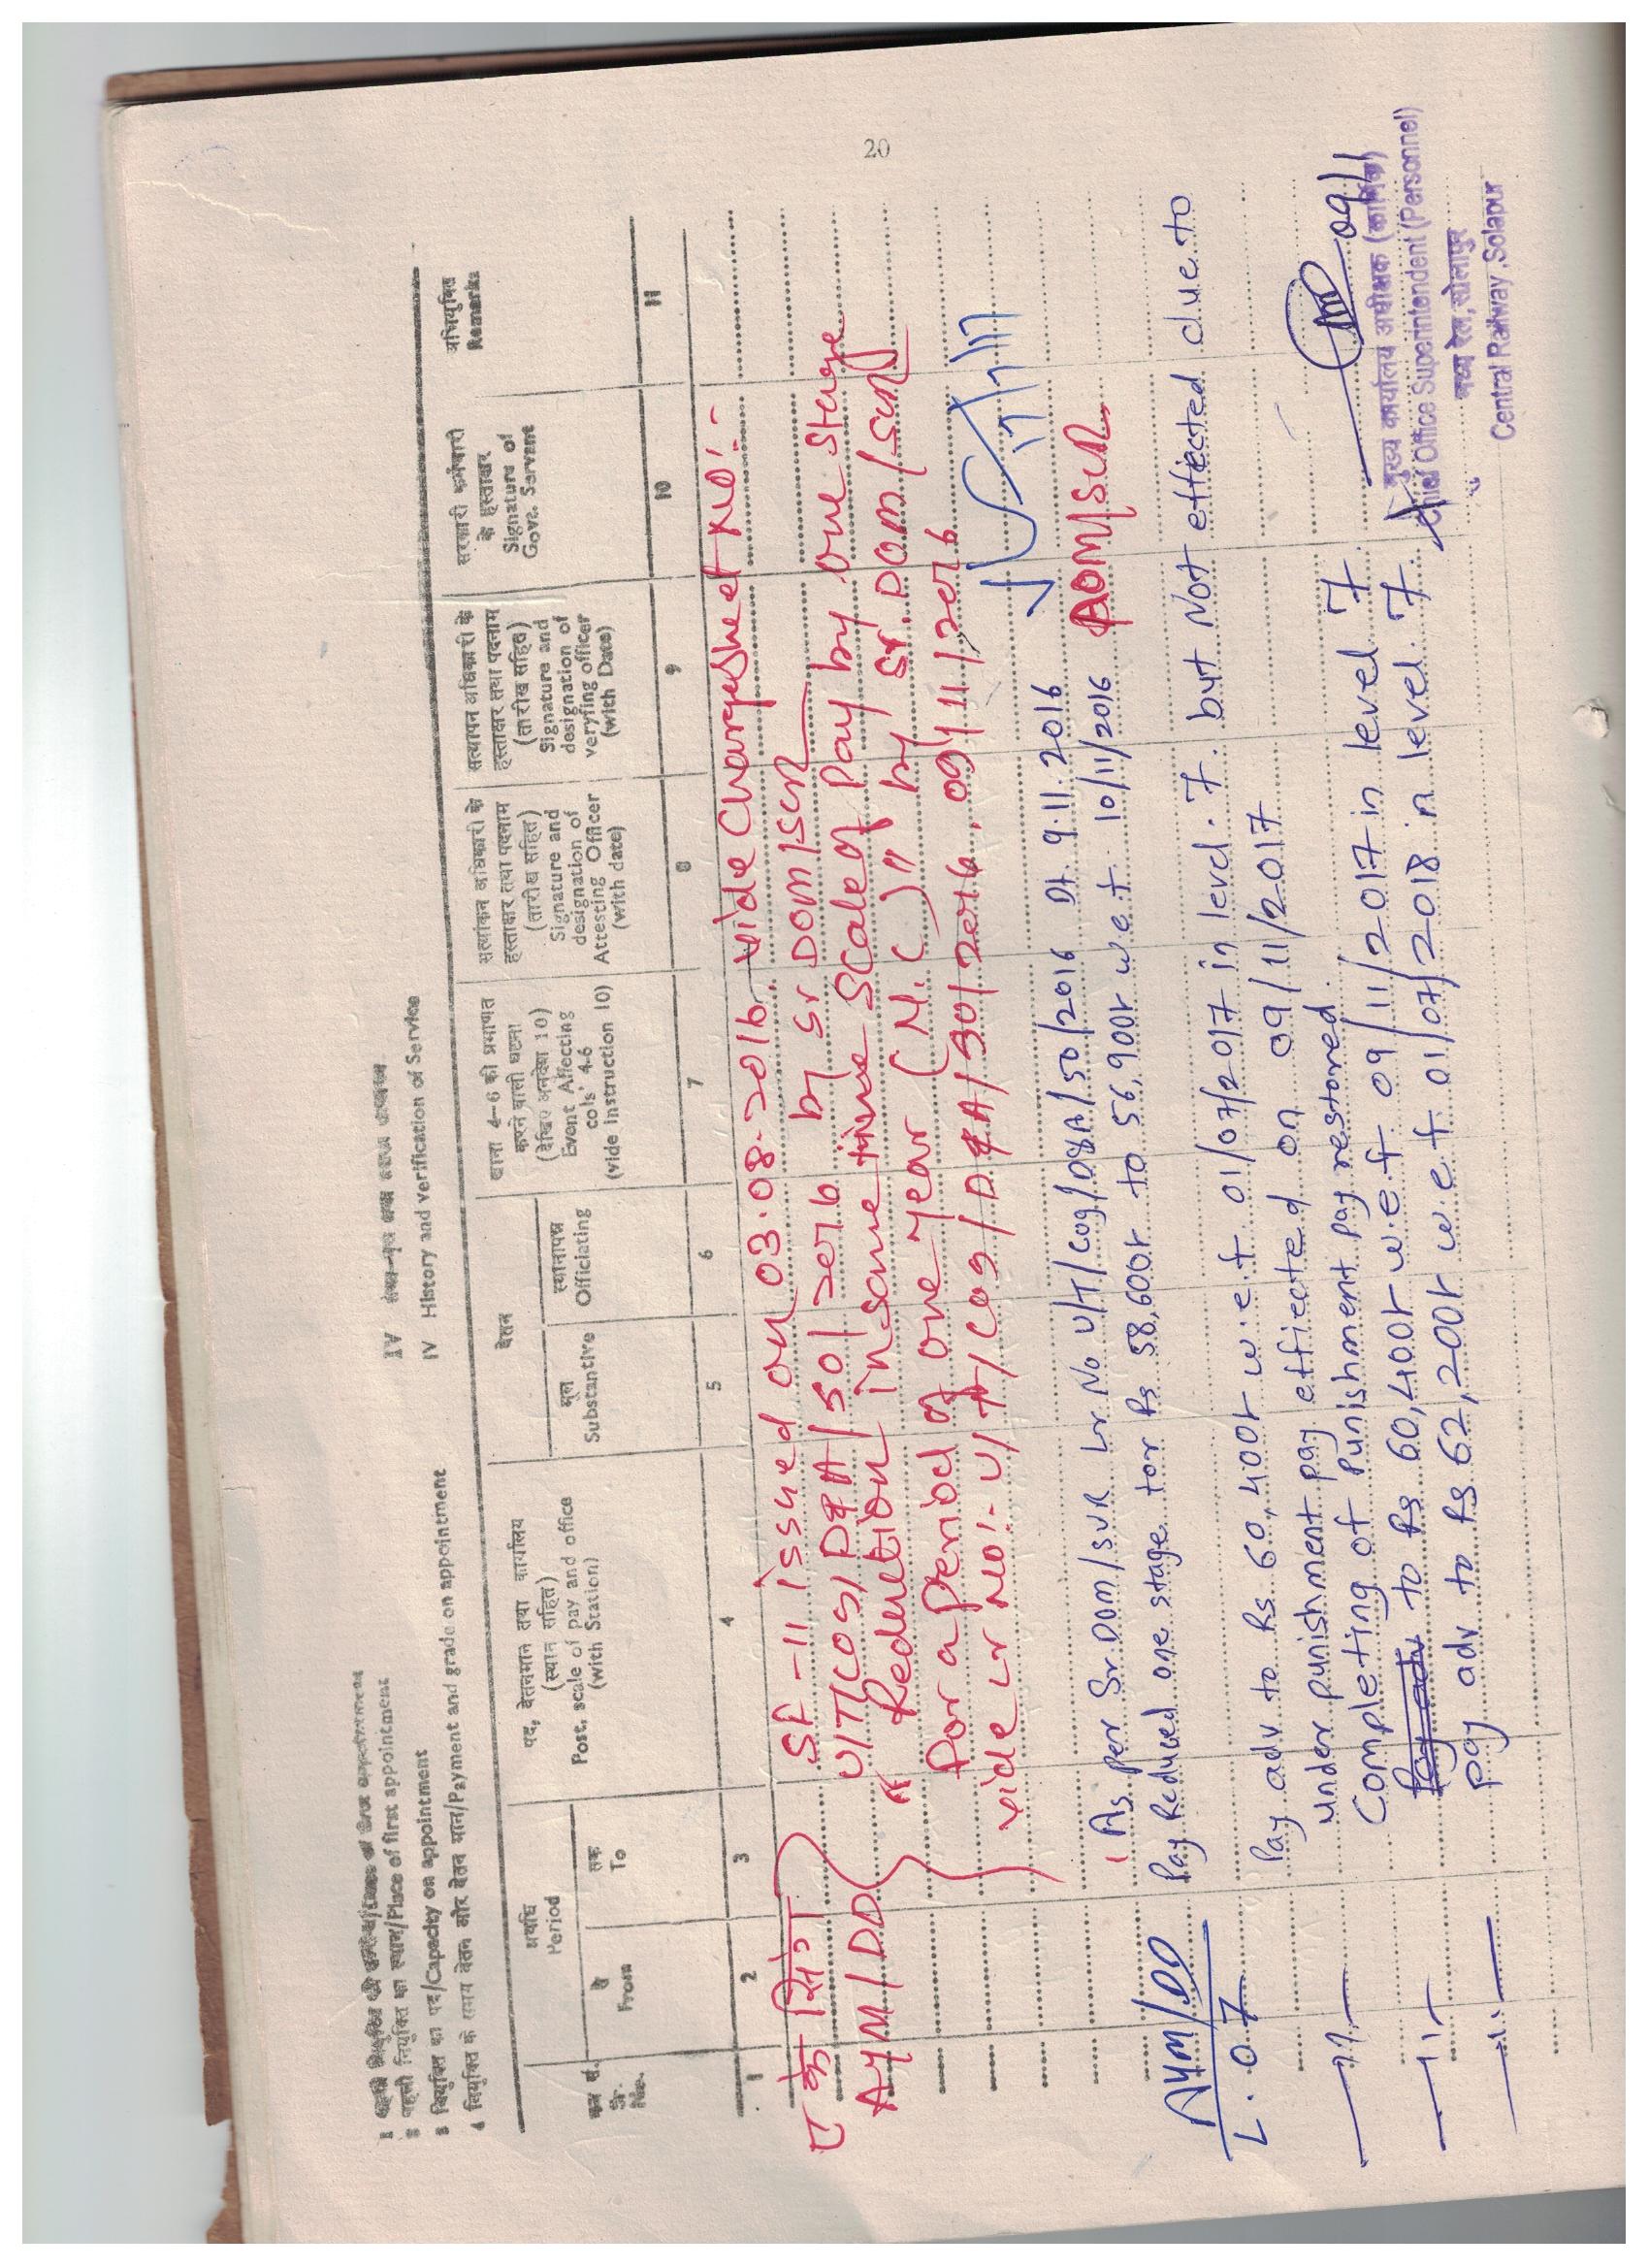 20
IV History and verification of Service
पहली नियुक्ति का स्थान/Place of first appointment
नियुक्ति का पद/Capacity on appointment
4 नियुक्ति के समय वेतन और वेतन मान/Payment and grade on appointment
क्रम सं.
Sr. No.
अवधि
Period
से
From
तक
To
पद, वेतनमान तथा कार्यालय
(स्थान सहित)
Post, scale of pay and office
(with Station)
वेतन
मूल
Substantive
स्थानापन्न
Officiating
खाना 4-6 की प्रमाणित
करने वाली घटना
(देखिए अनुदेश 10)
Event Affecting
cols' 4-6
(vide Instruction 10)
सत्यांकन अधिकारी के
हस्ताक्षर तथा पदनाम
(तारीख सहित)
Signature and
designation of
Attesting Officer
(with date)
सत्यापन अधिकारी के
हस्ताक्षर तथा पदनाम
(तारीख सहित)
Signature and
designation of
veryfing officer
(with Date)
सरकारी कर्मचारी
के हस्ताक्षर
Signature of
Govt. Servant
अभियुक्ति
Remarks
1 2 3 4 5 6 7 8 9 10 11
ए के सिंग SF-11 issued on 03.08.2016 vide Chargesheet No:-
AYM/DD U/T/COG/D&A/50/2016 by Sr DOM/SUR
" Reduction in same time scale of Pay by one stage
for a Period of one year (N.C)" by Sr. DOM/SUR
vide Lr No:- U/T/COG/D&A/50/2016, 09/11/2016
As per Sr.DOM/SUR Lr No U/T/COG/D&A/50/2016 Dt. 9.11.2016
AYM/DD Pay Reduced one stage for Rs 58,600r to 56,900r w.e.f. 10/11/2016 AOM/SUR
L. 07 Pay adv to Rs 60,400r w.e.f 01/07/2017 in level. 7. but Not effected due to
under punishment pay effected on 09/11/2017
—11— Completing of Punishment pay restored.
—11— to Rs 60,400r w.e.f 09/11/2017 in level 7
—11— pay adv to Rs 62,200r w.e.f 01/07/2018 in level. 7.
मुख्य कार्यालय अधीक्षक (कार्मिक)
Chief Office Superintendent (Personnel)
मध्य रेल, सोलापुर
Central Railway, Solapur